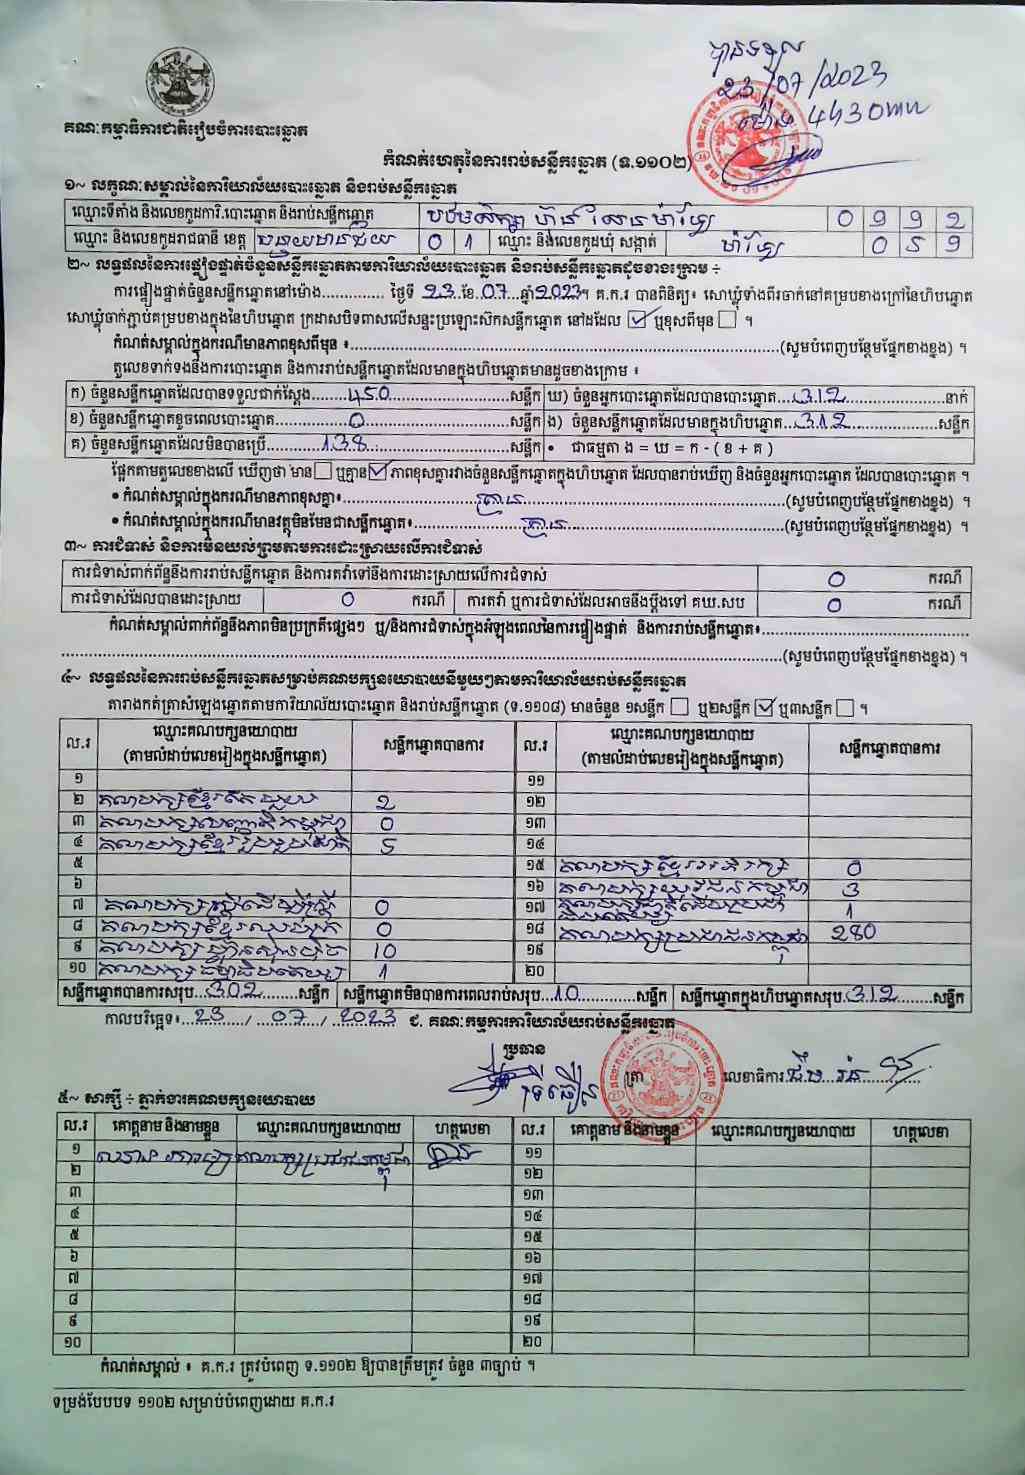 បានទទួល
23/07/2023
ម៉ោង 4h30mn
គណៈកម្មាធិការជាតិរៀបចំការបោះឆ្នោត
កំណត់ហេតុនៃការរាប់សន្លឹកឆ្នោត (ទ.១១០២)
១~ លក្ខណៈសម្គាល់នៃការិយាល័យបោះឆ្នោត និងរាប់សន្លឹកឆ្នោត
ឈ្មោះទីតាំង និងលេខកូដការិ.បោះឆ្នោត និងរាប់សន្លឹកឆ្នោត បឋមសិក្សា ហ៊ុន សែន ម៉ាឡៃ 0992
ឈ្មោះ និងលេខកូដរាជធានី ខេត្ត បន្ទាយមានជ័យ 01 ឈ្មោះ និងលេខកូដឃុំ សង្កាត់ ម៉ាឡៃ 059
២~ លទ្ធផលនៃការផ្ទៀងផ្ទាត់ចំនួនសន្លឹកឆ្នោតតាមការិយាល័យបោះឆ្នោត និងរាប់សន្លឹកឆ្នោតដូចខាងក្រោម ៖
ការផ្ទៀងផ្ទាត់ចំនួនសន្លឹកឆ្នោតនៅម៉ោង.............. ថ្ងៃទី 23 ខែ 07 ឆ្នាំ 2023។ គ.ក.រ បានពិនិត្យ៖ សោឃ្លុំទាំងពីរចាក់នៅគម្របខាងក្រៅនៃហិបឆ្នោត
សោឃ្លុំចាក់ភ្ជាប់គម្របខាងក្នុងនៃហិបឆ្នោត ក្រដាសបិទពាសលើសន្ទះប្រឡោះស៊កសន្លឹកឆ្នោត នៅដដែល ☑ ឬខុសពីមុន ☐ ។
កំណត់សម្គាល់ក្នុងករណីមានភាពខុសពីមុន ៖..........(សូមបំពេញបន្ថែមផ្នែកខាងខ្នង) ។
តួលេខទាក់ទងនឹងការបោះឆ្នោត និងការរាប់សន្លឹកឆ្នោតដែលមានក្នុងហិបឆ្នោតមានដូចខាងក្រោម ៖
ក) ចំនួនសន្លឹកឆ្នោតដែលបានទទួលជាក់ស្តែង......450......សន្លឹក ឃ) ចំនួនអ្នកបោះឆ្នោតដែលបានបោះឆ្នោត...312......នាក់
ខ) ចំនួនសន្លឹកឆ្នោតខូចពេលបោះឆ្នោត......0......សន្លឹក ង) ចំនួនសន្លឹកឆ្នោតដែលមានក្នុងហិបឆ្នោត...312......សន្លឹក
គ) ចំនួនសន្លឹកឆ្នោតដែលមិនបានប្រើ......138......សន្លឹក • ជាធម្មតា ង = ឃ = ក - ( ខ + គ )
ផ្អែកតាមតួលេខខាងលើ ឃើញថា មាន ☐ ឬគ្មាន ☑ ភាពខុសគ្នារវាងចំនួនសន្លឹកឆ្នោតក្នុងហិបឆ្នោត ដែលបានរាប់ឃើញ និងចំនួនអ្នកបោះឆ្នោត ដែលបានបោះឆ្នោត ។
• កំណត់សម្គាល់ក្នុងករណីមានភាពខុសគ្នា៖......គ្មាន......(សូមបំពេញបន្ថែមផ្នែកខាងខ្នង) ។
• កំណត់សម្គាល់ក្នុងករណីមានវត្ថុមិនមែនជាសន្លឹកឆ្នោត៖......គ្មាន......(សូមបំពេញបន្ថែមផ្នែកខាងខ្នង) ។
៣~ ការជំទាស់ និងការមិនយល់ព្រមតាមការដោះស្រាយលើការជំទាស់
ការជំទាស់ពាក់ព័ន្ធនឹងការរាប់សន្លឹកឆ្នោត និងការតវ៉ាទៅនឹងការដោះស្រាយលើការជំទាស់ 0 ករណី
ការជំទាស់ដែលបានដោះស្រាយ 0 ករណី ការតវ៉ា ឬការជំទាស់ដែលអាចនឹងប្តឹងទៅ គឃ.សប 0 ករណី
កំណត់សម្គាល់ពាក់ព័ន្ធនឹងភាពមិនប្រក្រតីផ្សេងៗ ឬ/និងការជំទាស់ក្នុងអំឡុងពេលនៃការផ្ទៀងផ្ទាត់ និងការរាប់សន្លឹកឆ្នោត៖..........
..........(សូមបំពេញបន្ថែមផ្នែកខាងខ្នង) ។
៤~ លទ្ធផលនៃការរាប់សន្លឹកឆ្នោតសម្រាប់គណបក្សនយោបាយនីមួយៗតាមការិយាល័យរាប់សន្លឹកឆ្នោត
តារាងកត់ត្រាសំឡេងឆ្នោតតាមការិយាល័យបោះឆ្នោត និងរាប់សន្លឹកឆ្នោត (ទ.១១០៨) មានចំនួន ១សន្លឹក ☐ ឬ២សន្លឹក ☑ ឬ៣សន្លឹក ☐ ។
ល.រ ឈ្មោះគណបក្សនយោបាយ (តាមលំដាប់លេខរៀងក្នុងសន្លឹកឆ្នោត) សន្លឹកឆ្នោតបានការ ល.រ ឈ្មោះគណបក្សនយោបាយ (តាមលំដាប់លេខរៀងក្នុងសន្លឹកឆ្នោត) សន្លឹកឆ្នោតបានការ
១ ១១
២ គណបក្សខ្មែរតែមួយ 2 ១២
៣ គណបក្សបញ្ញាតិកម្ពុជា 0 ១៣
៤ គណបក្សខ្មែររួបរួមជាតិ 5 ១៤
៥ ១៥ គណបក្សខ្មែរអភិរក្ស 0
៦ ១៦ គណបក្សយុវជនកម្ពុជា 3
៧ គណបក្សស្ត្រីដើម្បីស្ត្រី 0 ១៧ 1
៨ គណបក្សខ្មែរឈប់ក្រ 0 ១៨ គណបក្សប្រជាជនកម្ពុជា 280
៩ គណបក្សហ្វ៊ុនស៊ិនប៉ិច 10 ១៩
១០ គណបក្សធម្មាធិបតេយ្យ 1 ២០
សន្លឹកឆ្នោតបានការសរុប...302......សន្លឹក សន្លឹកឆ្នោតមិនបានការពេលរាប់សរុប...10......សន្លឹក សន្លឹកឆ្នោតក្នុងហិបឆ្នោតសរុប...312......សន្លឹក
កាលបរិច្ឆេទ៖ 23 / 07 / 2023 ជ. គណៈកម្មការការិយាល័យរាប់សន្លឹកឆ្នោត
ប្រធាន ត្រា លេខាធិការ
៥~ សាក្សី ៖ ភ្នាក់ងារគណបក្សនយោបាយ
ល.រ គោត្តនាម និងនាមខ្លួន ឈ្មោះគណបក្សនយោបាយ ហត្ថលេខា ល.រ គោត្តនាម និងនាមខ្លួន ឈ្មោះគណបក្សនយោបាយ ហត្ថលេខា
១ គណបក្សប្រជាជនកម្ពុជា ១១
២ ១២
៣ ១៣
៤ ១៤
៥ ១៥
៦ ១៦
៧ ១៧
៨ ១៨
៩ ១៩
១០ ២០
កំណត់សម្គាល់ ៖ គ.ក.រ ត្រូវបំពេញ ទ.១១០២ ឱ្យបានត្រឹមត្រូវ ចំនួន ៣ច្បាប់ ។
ទម្រង់បែបបទ ១១០២ សម្រាប់បំពេញដោយ គ.ក.រ